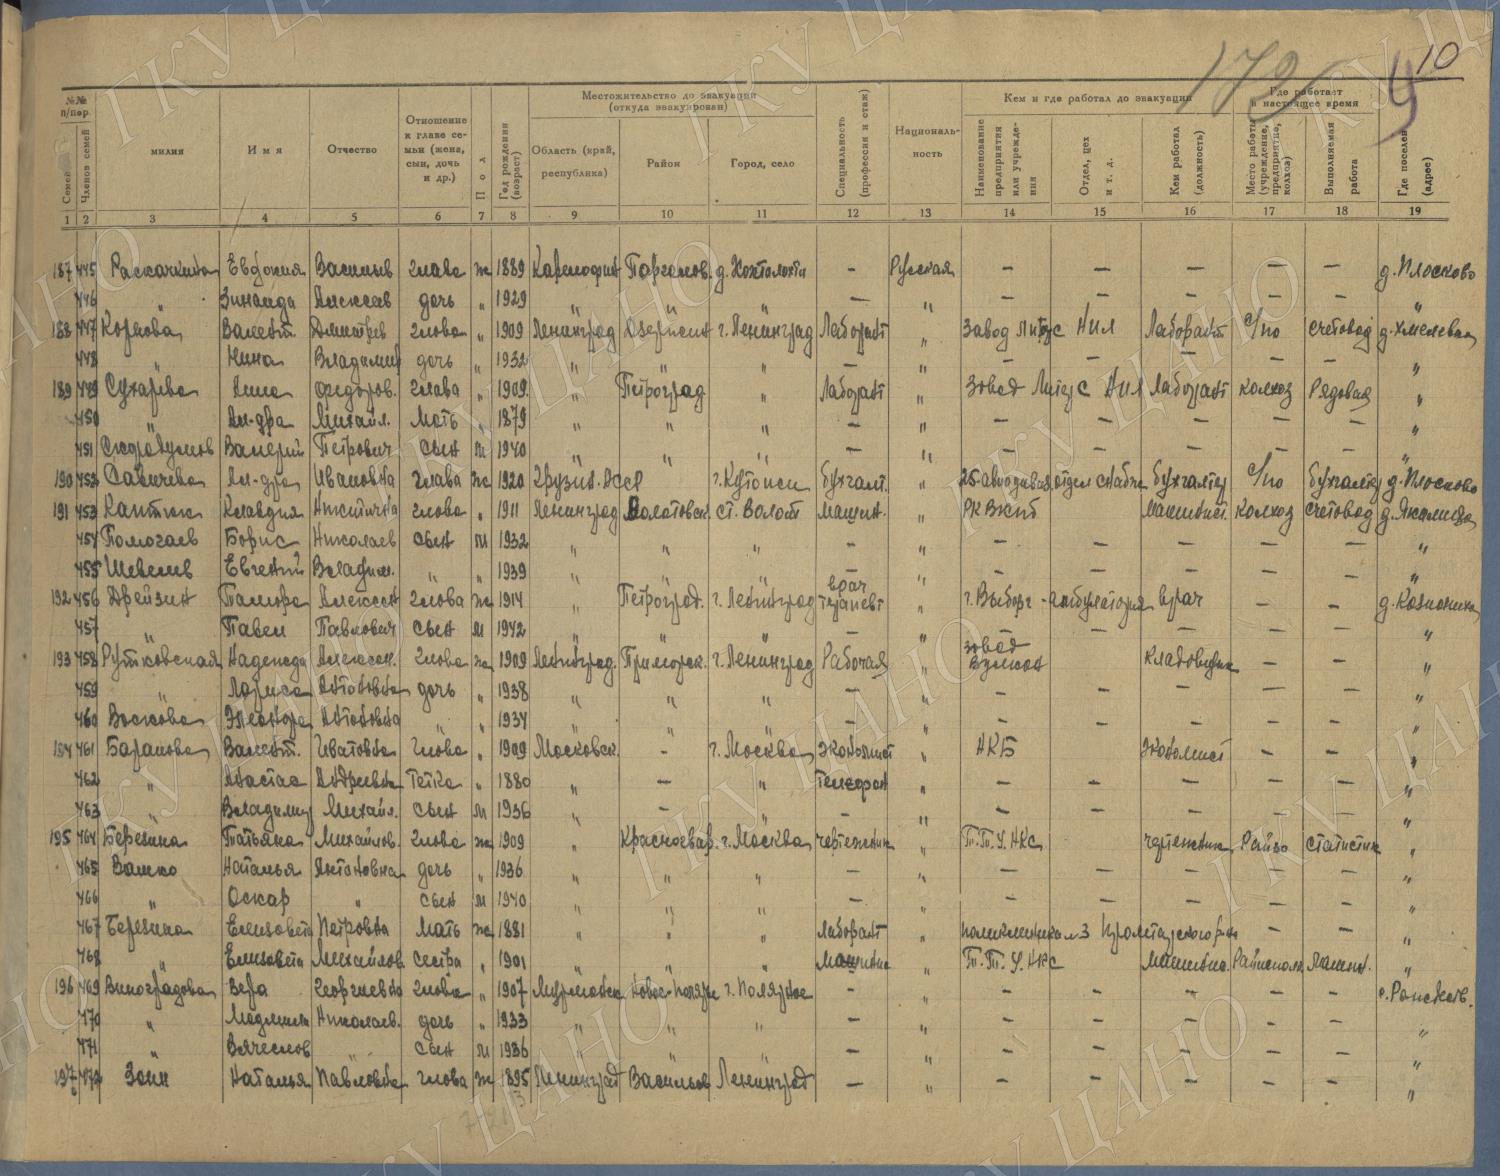 179
10
№№ п/пор.
Местожительство до эвакуации (откуда эвакуирован)
Кем и где работал до эвакуации
Где работает в настоящее время
Семей
Членов семей
милия
Имя
Отчество
Отношение к главе семьи (жена, сын, дочь и др.)
Пол
Год рождения (возраст)
Область (край, республика)
Район
Город, село
Специальность (профессия и стаж)
Националь-ность
Наименование предприятия или учреждения
Отдел, цех и т. д.
Кем работал (должность)
Место работы (учреждение, предприятие, колхоз)
Выполняемая работа
Где поселен (адрес)
1 2 3 4 5 6 7 8 9 10 11 12 13 14 15 16 17 18 19
187 445 Евдокия Васильев глава ж 1889 Карелофин Парголов. – Русская – – – – – д. Плосково
446 " Зинаида Алексеев дочь " 1929 " " " – " – – – – – "
188 447 Корнова Валент. Дмитрев глава " 1909 Ленинград г. Ленинград Лаборант " завод Литус НИЛ Лаборант с/по счетовод д. Хмелевая
448 " Нина Владимир дочь " 1932 " " " – " – – – – – "
189 449 Сухарева Анна Федоров. глава " 1909 " Петроград " Лаборант " Завод Литус НИЛ Лаборант колхоз Рядовая "
450 " Ал-дра Михайл. Мать " 1879 " " " – " – – – – – "
451 Валерий Петрович сын м 1940 " " " – " – – – – – "
190 452 Савичева Ал-дра Ивановна глава ж 1920 Грузин. ССР г. Кутаиси бухгалт. " отдел снабж бухгалтер с/по бухгалтер д. Плосково
191 453 Клавдия Никитична глава " 1911 Ленинград Волотовск. ст. Волот машин. " РК ВКПб машинист. колхоз счетовод
454 Помогаев Борис Николаев сын м 1932 " " " – " – – – – – "
455 Шевелев Евгений Владим. " " 1939 " " " – " – – – – – "
192 456 Дрейзин Тамара Алексеев глава ж 1914 " Петроград. г. Ленинград врач терапевт " г. Выборг – амбулатория врач – –
457 " Павел Павлович сын м 1942 " " " – " – – – – – "
193 458 Рутковская Надежда Алексеев. глава ж 1909 Ленинград. Приморск. г. Ленинград Рабочая " завод Вулкан кладовщик – – "
459 " Лариса Антоновна дочь " 1938 " " " – " – – – – – "
460 Воскова Элеонора Антоновна " " 1937 " " " – " – – – – – "
194 461 Баранова Валент. Игнатовна глава " 1909 Московск. – г. Москва экономист " НКБ экономист – – "
462 " Анастас Андреевна тетка " 1880 " – " телефон " – – – – – "
463 " Владимир Михайл. сын м 1936 " – " – " – – – – – "
195 464 Березина Татьяна Михайлов. глава ж 1909 " Красногвар. г. Москва чертежник " Т.Т.У.НКС чертежник Райзо статистик "
465 Вашко Наталья Антоновна дочь " 1936 " " " – " – – – – – "
466 " Оскар " сын м 1940 " " " – " – – – – – "
467 Березина Елизовета Петровна Мать ж 1881 " " " Лаборант " поликлиника №3 Пролетарского р-на – – "
468 " Елизовета Михайлов. сестра " 1901 " " " Машинис " Т.Т.У.НКС машинис. Райисполк. Машин. "
196 469 Виноградова Вера Георгиевна глава " 1907 Мурманск Полярн г. Полярное – " – – – – –
470 " Людмила Николаев. дочь " 1933 " " " – " – – – – – "
471 " Вячеслов " сын м 1936 " " " – " – – – – – "
197 472 Наталья Павловна глава ж 1895 Ленинград Васильев Ленинград – " – – – – – "